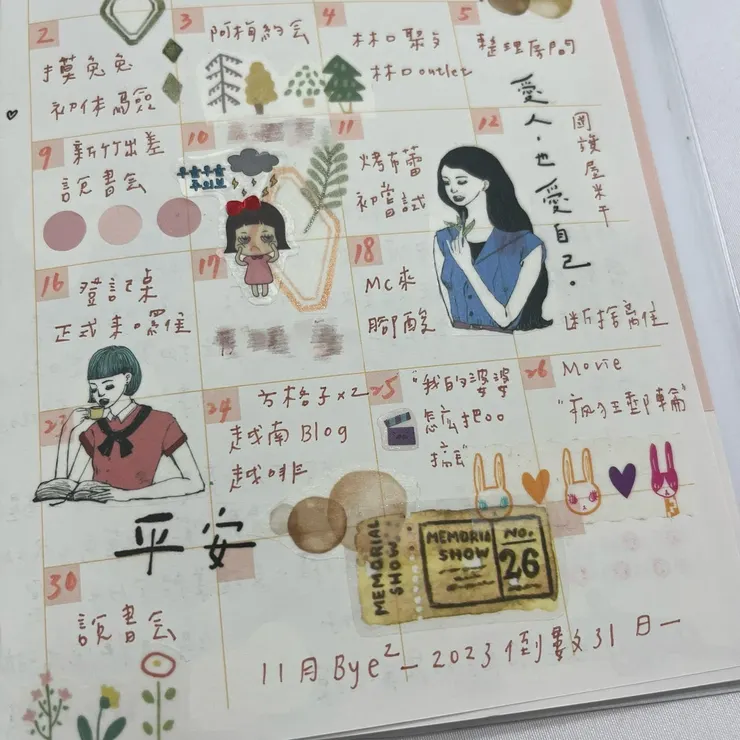 2
摸兔兔
初体驗
3
阿梅約会
4
林口聚歺
林口outlet
5
整理房間
9
新竹出差
說書会
10
우울우울
주의보
11
烤布蕾
初嘗試
12
愛人,也愛自己.
國護屋米干
16
登記桌
正式來囉
17
18
MC來
腳酸
断捨離
23
24
方格子x2
越南Blog
越啡
25
"我的婆婆
怎么把OO
搞丟"
26
Movie
"瘋狂輪"
平安
MEMORIAL
SHOW
MEMORIAL
SHOW
NO.
26
30
說書会
11月Bye²—2023倒數31日—